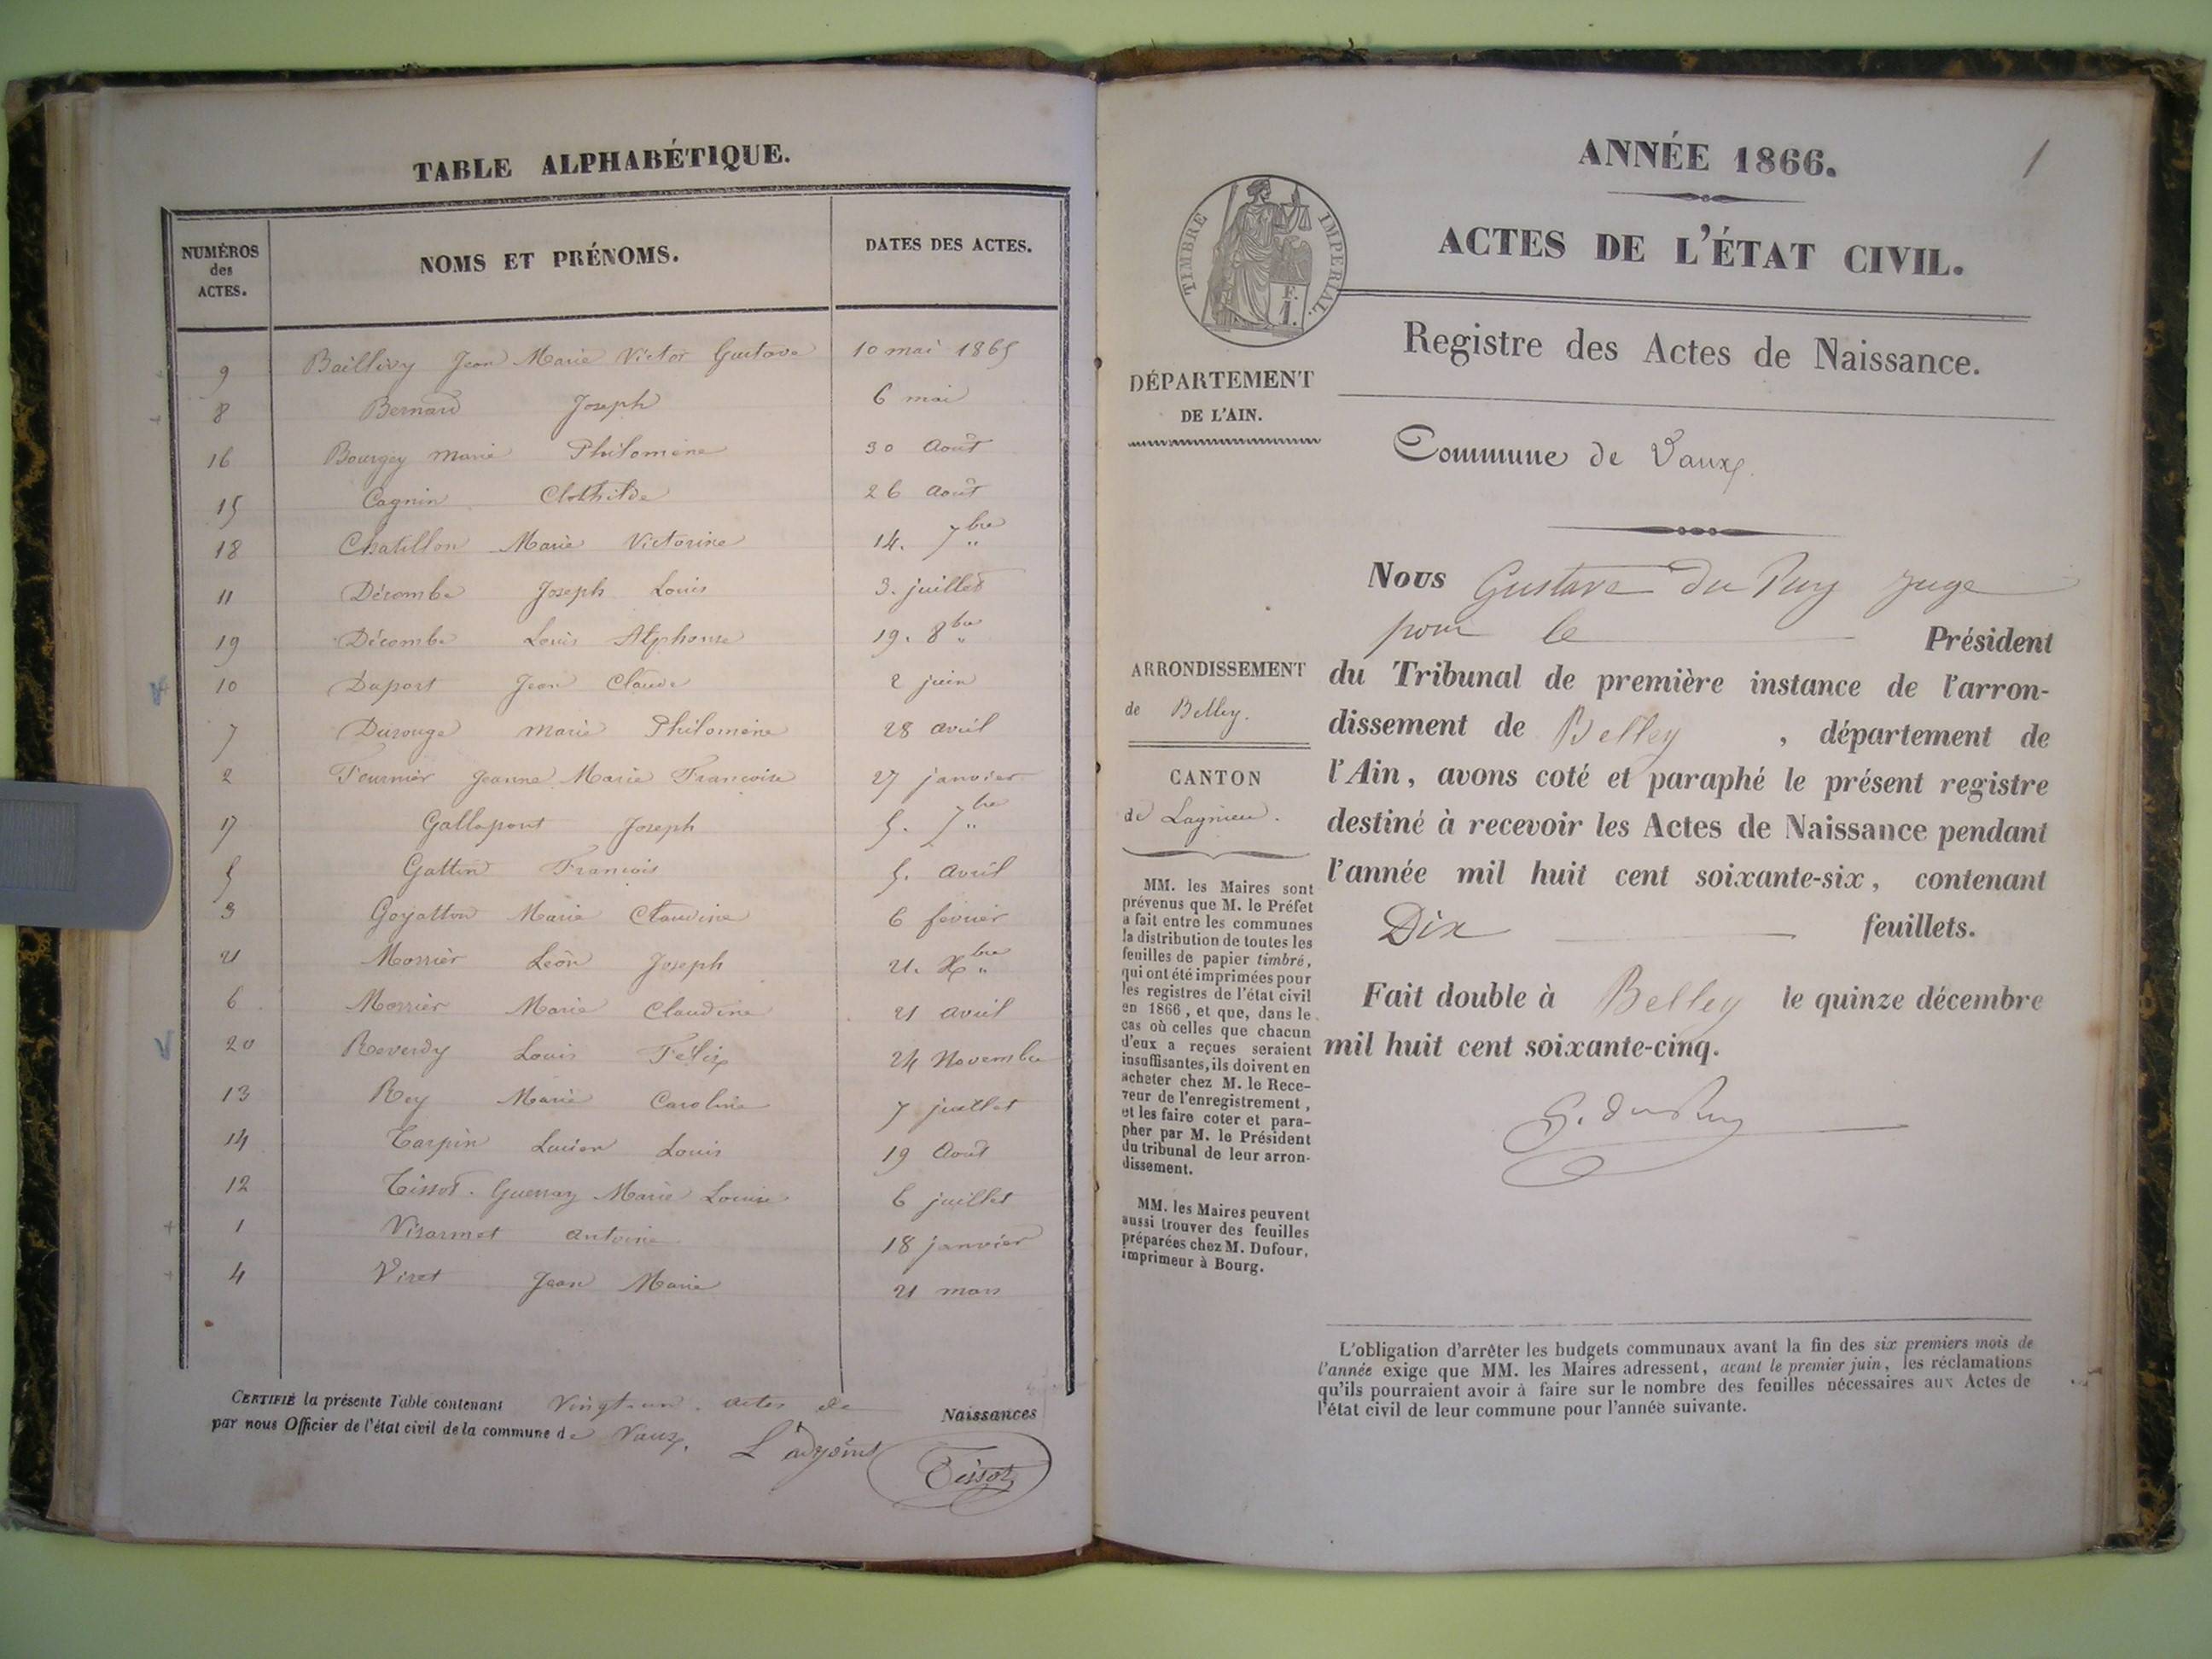 TABLE ALPHABÉTIQUE.
NUMÉROS des ACTES. NOMS ET PRÉNOMS. DATES DES ACTES.
9 Baillivy Jean Marie Victor Gustave 10 mai 1865
8 Bernard Joseph 6 mai
16 Bourgey Marie Philomène 30 Août
15 Cagnin Clothilde 26 Août
18 Chatillon Marie Victorine 14. 7bre
11 Décombe Joseph Louis 3. juillet
19 Décombe Louis Alphonse 19. 8bre
10 Duport Jean Claude 2 juin
7 Durouge Marie Philomène 28 avril
2 Fournier Jeanne Marie Françoise 27 janvier
17 Gallapont Joseph 5. 7bre
5 Gattin François 5. Avril
3 Goyatton Marie Claudine 6 février
21 Morrier Léon Joseph 21. Xbre
6 Morrier Marie Claudine 21 avril
20 Reverdy Louis Felix 24 Novembre
13 Rey Marie Caroline 7 juillet
14 Tarpin Lucien Louis 19 Août
12 Tissot. Guerraz Marie Louise 6 juillet
1 Visarmet antoine 18 janvier
4 Viret Jean Marie 21 mars
CERTIFIÉ la présente Table contenant Vingt-un. actes de Naissances
par nous Officier de l'état civil de la commune de Vaux. L'adjoint
Tissot
1
ANNÉE 1866.
ACTES DE L'ÉTAT CIVIL.
TIMBRE IMPÉRIAL.
F.
1.
Registre des Actes de Naissance.
DÉPARTEMENT
DE L'AIN.
Commune de Vaux.
ARRONDISSEMENT
de Belley.
CANTON
de Lagnieu.
MM. les Maires sont
prévenus que M. le Préfet
a fait entre les communes
la distribution de toutes les
feuilles de papier timbré,
qui ont été imprimées pour
les registres de l'état civil
en 1866, et que, dans le
cas où celles que chacun
d'eux a reçues seraient
insuffisantes, ils doivent en
acheter chez M. le Rece-
veur de l'enregistrement,
et les faire coter et para-
pher par M. le Président
du tribunal de leur arron-
dissement.
MM. les Maires peuvent
aussi trouver des feuilles
préparées chez M. Dufour,
imprimeur à Bourg.
Nous Gustave du Puy juge
pour le Président
du Tribunal de première instance de l'arron-
dissement de Belley, département de
l'Ain, avons coté et paraphé le présent registre
destiné à recevoir les Actes de Naissance pendant
l'année mil huit cent soixante-six, contenant
Dix feuillets.
Fait double à Belley le quinze décembre
mil huit cent soixante-cinq.
G. du Puy
L'obligation d'arrêter les budgets communaux avant la fin des six premiers mois de
l'année exige que MM. les Maires adressent, avant le premier juin, les réclamations
qu'ils pourraient avoir à faire sur le nombre des feuilles nécessaires aux Actes de
l'état civil de leur commune pour l'année suivante.